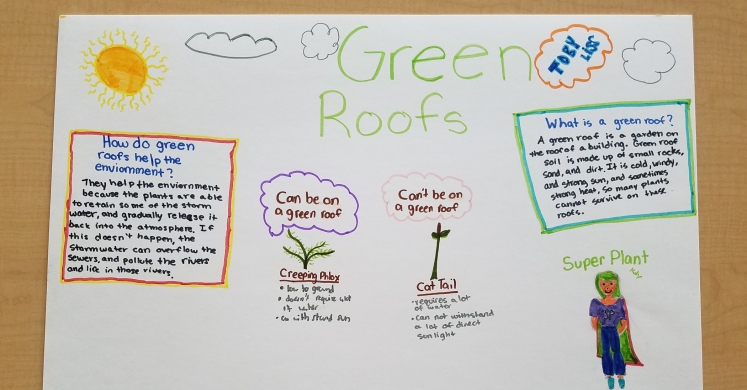 Green
Roofs
TOBY
LISS
How do green
roofs help the
enviornment?
They help the enviernment
because the plants are able
to retain some of the storm
water, and gradually release it
back into the atmosphere. If
this doesn't happen, the
stormwater can overflow the
sewers, and pollute the rivers
and life in those rivers.
Can be on
a green roof
Creeping Phlox
• low to ground
• doesn't require alot
of water
• can withstand sun
Can't be on
a green roof
Cat Tail
• requires a lot
of water
• can not withstand
a lot of direct
sunlight
What is a green roof?
A green roof is a garden on
the roof of a building. Green roof
soil is made up of small rocks,
sand, and dirt. It is cold, windy,
and strong sun, and sometimes
strong heat, so many plants
cannot survive on these
roofs.
Super Plant